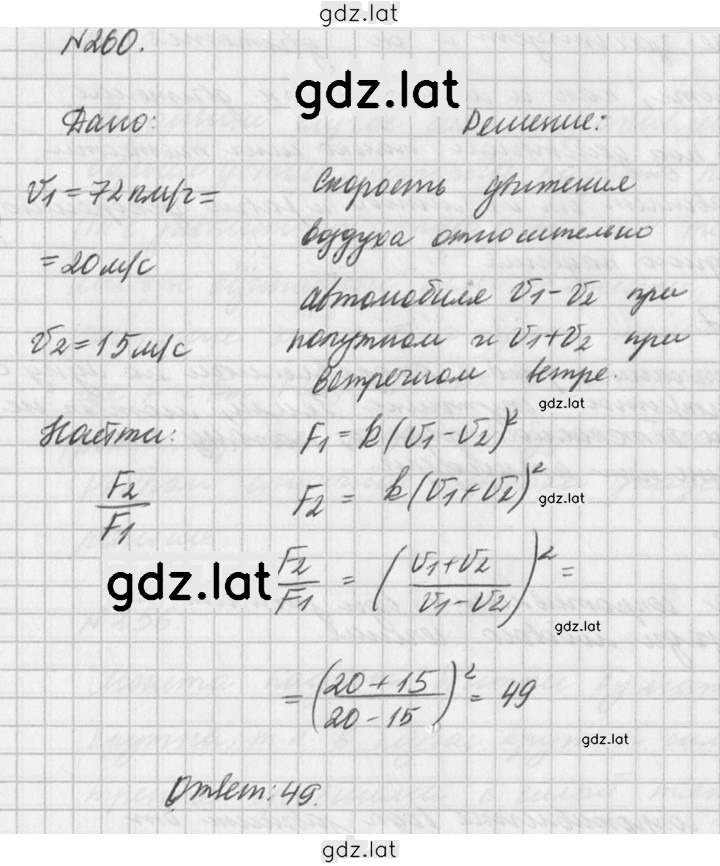 gdz.lat
№260.
gdz.lat
Дано:
Решение:
V1 = 72 км/ч =
= 20 м/с
V2 = 15 м/с
Скорость движения
воздуха относительно
автомобиля V1 - V2 при
попутном и V1 + V2 при
встречном ветре.
gdz.lat
Найти:
F2/F1
F1 = k(V1 - V2)²
F2 = k(V1 + V2)²
gdz.lat
gdz.lat
F2/F1 = ((V1 + V2)/(V1 - V2))² =
gdz.lat
= ((20 + 15)/(20 - 15))² = 49
gdz.lat
Ответ: 49.
gdz.lat